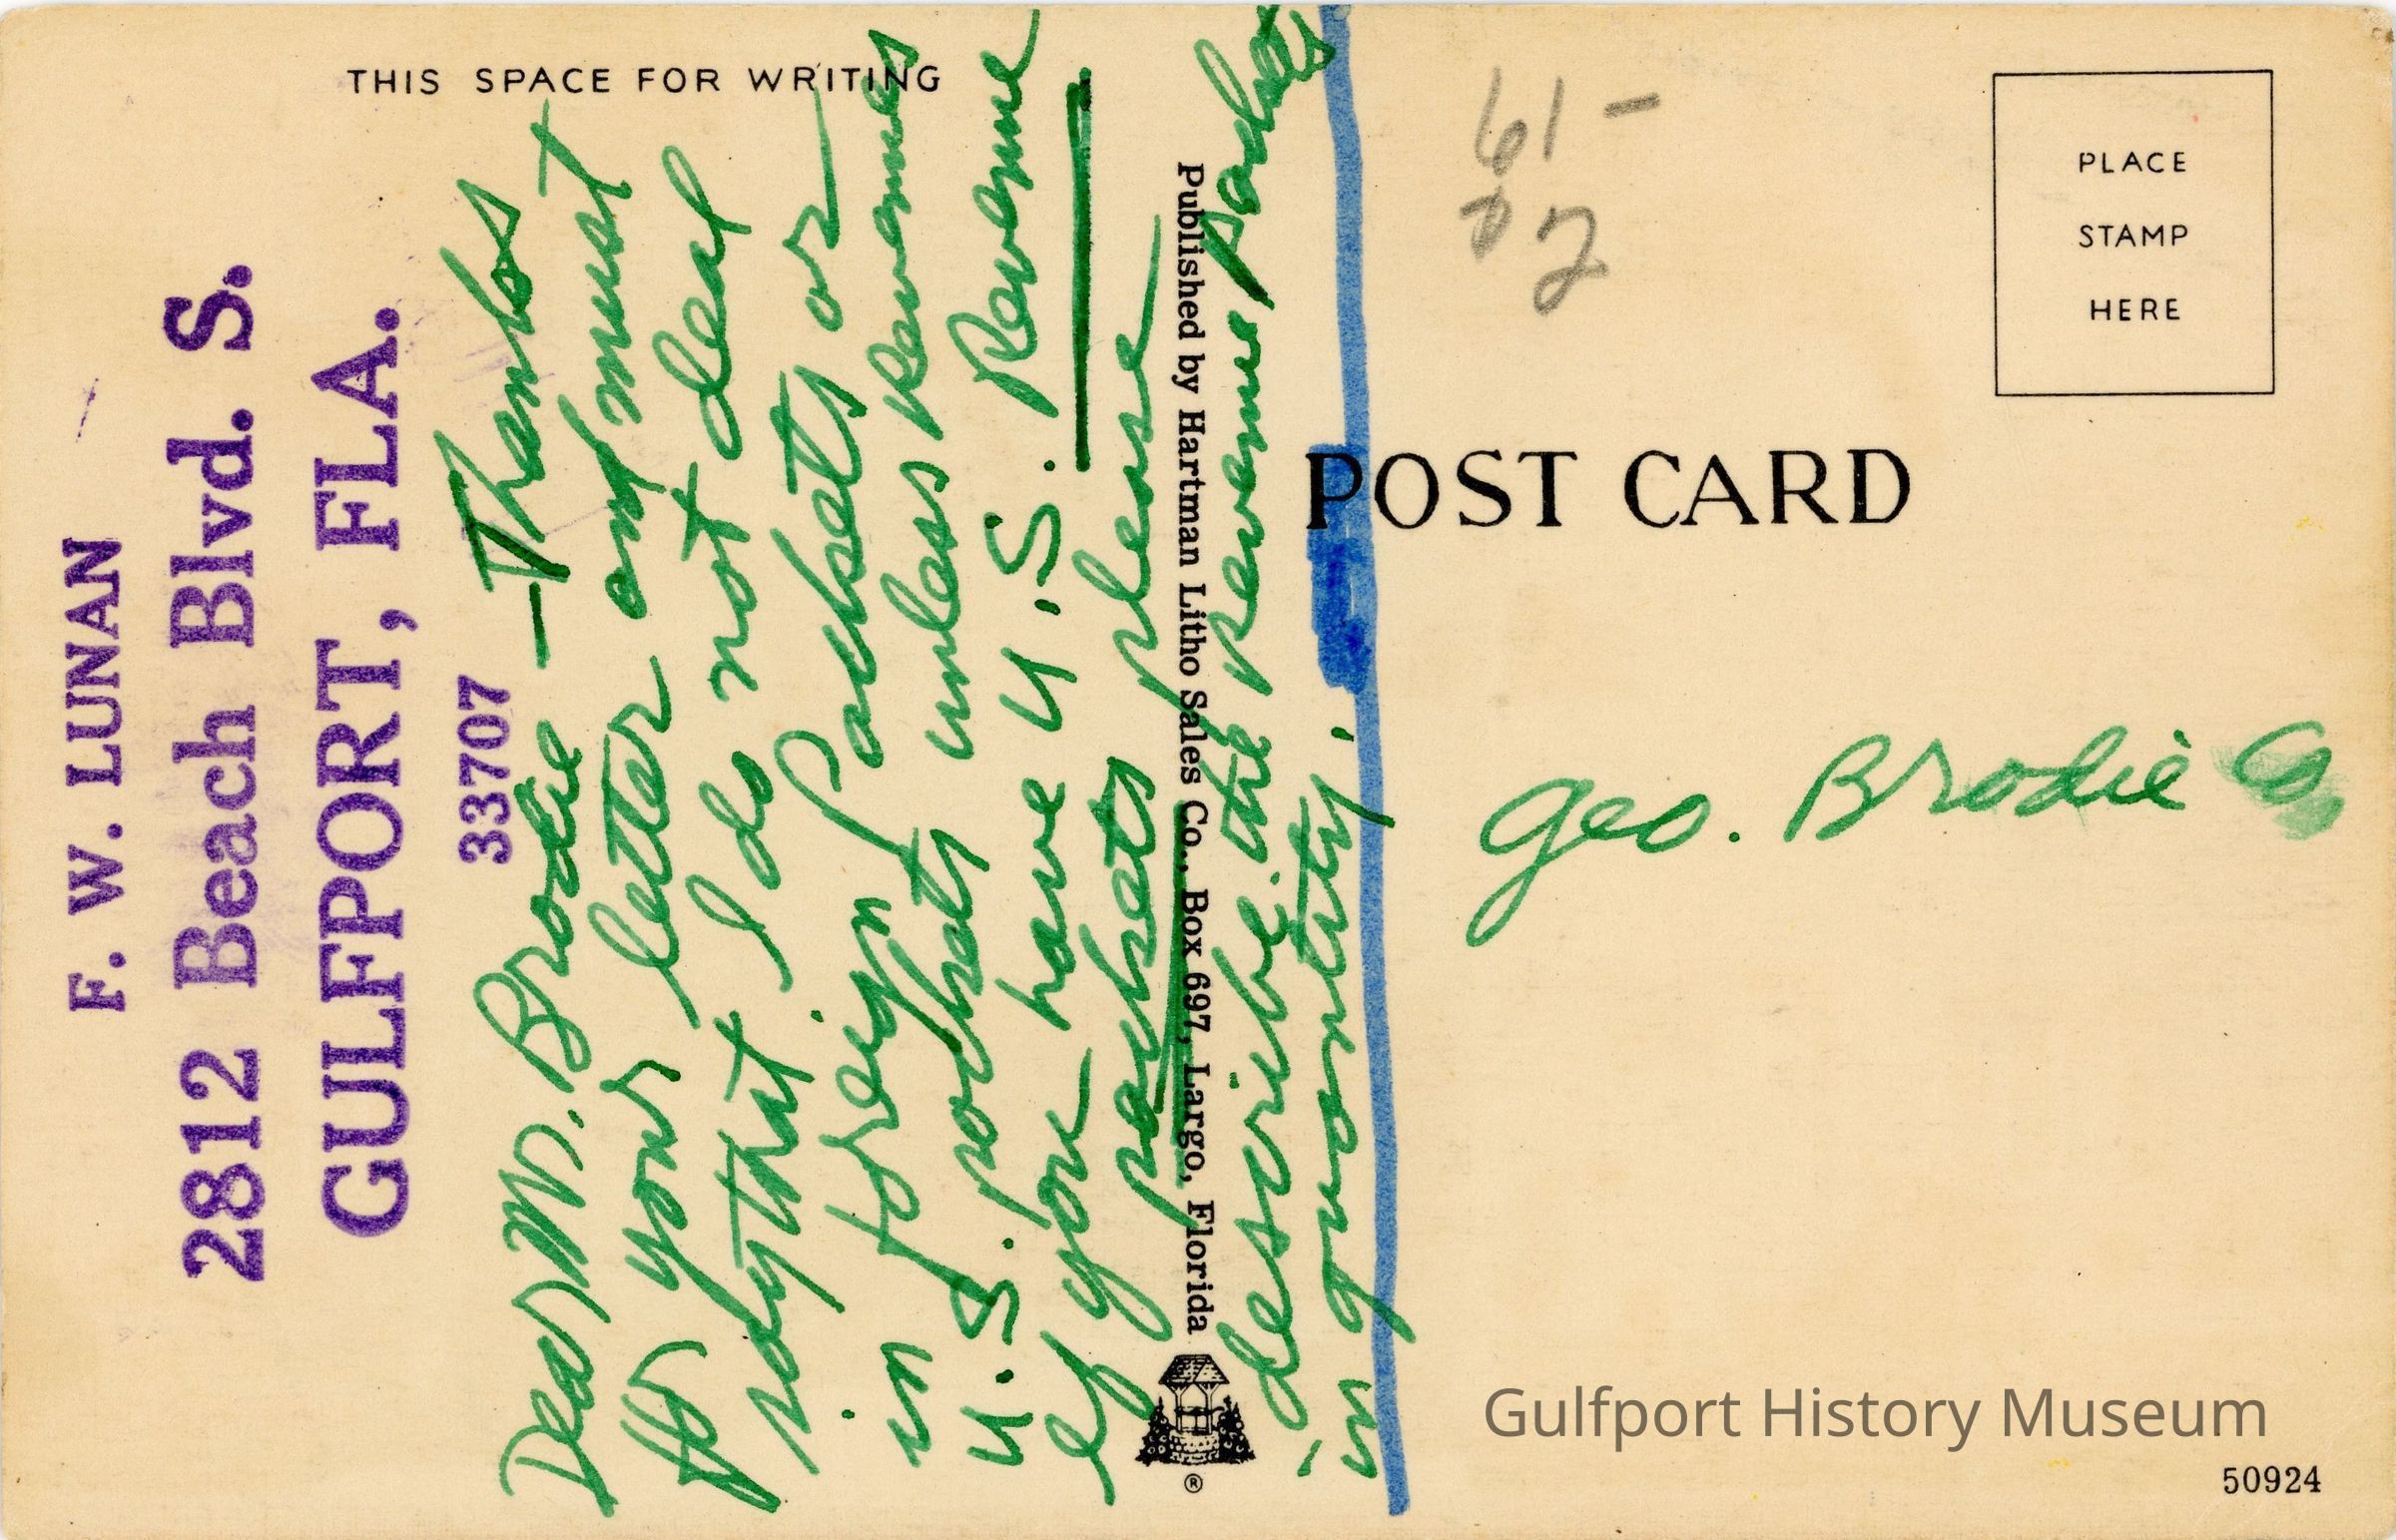 THIS SPACE FOR WRITING
F. W. LUNAN
2812 Beach Blvd. S.
GULFPORT, FLA.
33707
Dear Mr. Brodie — Thanks
for your letter and must
say that I do not deal
in foreign Packets or
U.S. packets unless Revenues
If you have U.S. Revenue
packets please
describe the Revenue packets
in quantity.
Published by Hartman Litho Sales Co., Box 697, Largo, Florida
®
61-
2
PLACE
STAMP
HERE
POST CARD
Geo. Brodie Co.
Gulfport History Museum
50924